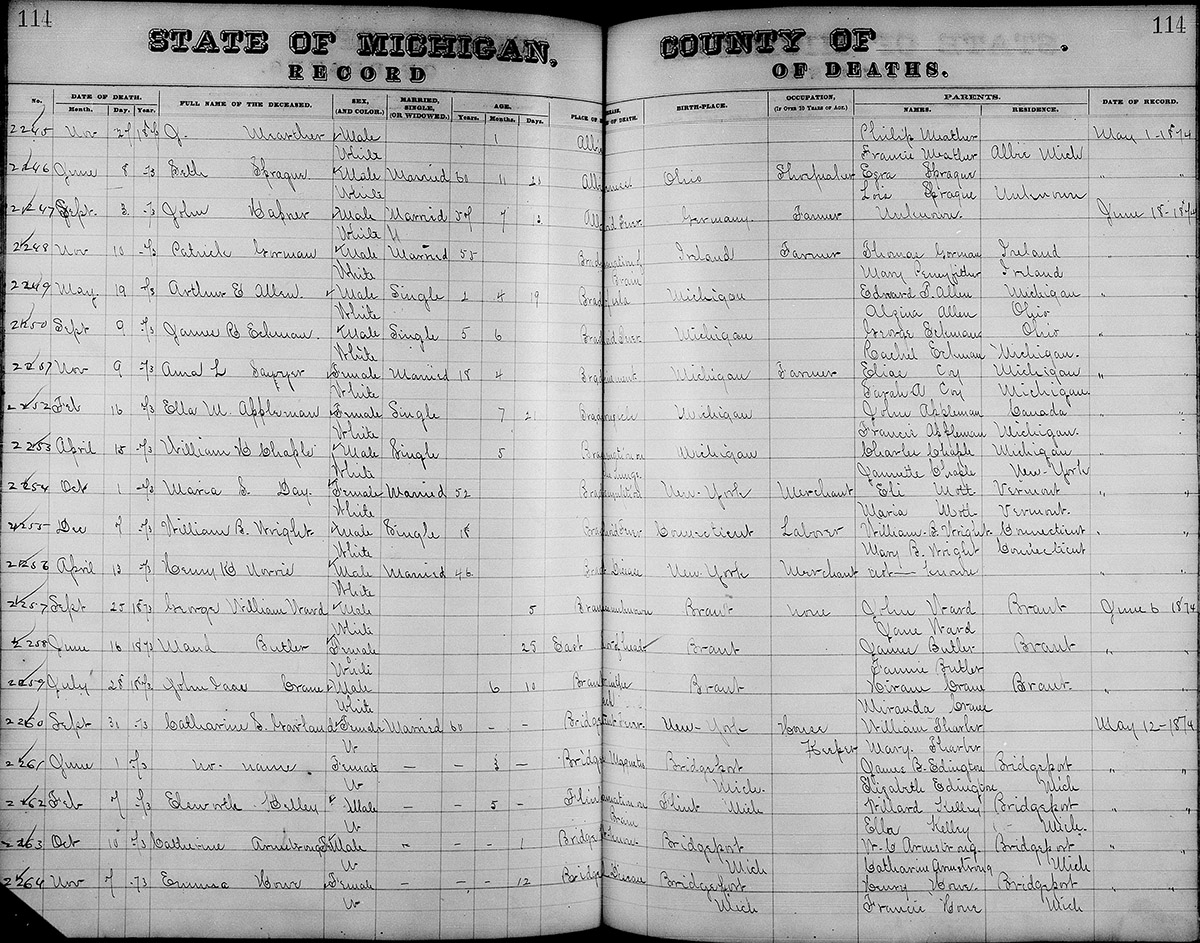 114
114
STATE OF MICHIGAN, COUNTY OF .
RECORD OF DEATHS.
No. DATE OF DEATH. Month. Day. Year. FULL NAME OF THE DECEASED. SEX, (AND COLOR.) MARRIED, SINGLE, (OR WIDOWED.) AGE. Years. Months. Days. PLACE OF OF DEATH. BIRTH-PLACE. OCCUPATION, (IF OVER 10 YEARS OF AGE.) PARENTS. NAMES. RESIDENCE. DATE OF RECORD.
2245 Nov 27 J. Marther Male 1 Albi Philip Meather May 1-1874
White Francie Meather Albie Mich
2246 June 8 -73 Seth Sprague Male Married 60 11 Alb Ohio Ezra Sprague "
White Lois Sprague Unknown
2247 Sept. 3 -73 John Hafner Male Married 7 Germany Farmer Unknown. June 18-1874
White
2248 Nov 10 -73 Patrick Gorman Male Married 55 Brad Ireland Farmer Thomas Gorman Ireland "
White Brain Mary Ireland
2249 May 19 -73 Arthur E Allen. Male Single 2 4 19 Brad Michigan Edward P. Allen Michigan "
White Algina Allen Ohio
2250 Sept 9 -73 Male Single 5 6 Brad Michigan George Ohio "
White Rachel Michigan.
2251 Nov 9 -73 Ama L Sawyer Female Married 18 4 Brad Michigan Farmer Elias Coy Michigan "
White Sarah A Coy Michigan
2252 Feb 16 -73 Ella M. Appleman Female Single 7 21 Michigan John Appleman Canada "
White Francie Appleman Michigan.
2253 April 15 -73 William H Chaple Male Single 5 Bra on Michigan Charles Chaple Michigan "
White Lungs. Jannette Chaple New-York
2254 Oct 1 -73 Maria S. Day. Female Married 52 Bra New-York Merchant Eli Mott Vermont "
White Maria Mott Vermont.
2255 Dec 7 -73 William B. Wright Male Single 18 Bra Fever Connecticut Laborer William-B. Wright Connecticut "
White Mary B. Wright Connecticut
2256 April 13 -73 Henry H Norris Male Married 46. Bra Disease New-York Merchant not-known "
White
2257 Sept 25 1873 George William Ward Male 5 Bran unknown Brant none John Ward Brant June 6 1874
White Jane Ward
2258 June 16 1873 Maud Butler Female 25 East Brant James Butler Brant "
White Fannie Butler
2259 July 25 John Isac Crane Male 6 10 Bran Brant Hiram Crane Brant. "
White Miranda Crane
2260 Sept 31 -73 Catharine S Garland Female Married 60 - - Bridge Fever New-York House William Tharber May 12-1874
W Keeper Mary. Tharber
2261 June 1 -73 no name Female - 3 - Bridge Bridgeport James B. Edington Bridgeport "
W Mich. Elizabeth Edington Mich
2262 Feb 7 -73 Elsworth Kelley Male - - 5 - Flin on Flint Mich Willard Kelley Bridgeport "
W Brain Ella Kelley Mich.
2263 Oct 10 -73 Catherine Armstrong Male - - 1 Bridge Bridgeport W. C Armstrong. Bridgeport "
W Mich Catharine Armstrong Mich
2264 Nov 7 -73 Emma Howe Female - - - 12 Bridge Disease Bridgeport Henry Howe Bridgeport "
W Mich Francie Howe Mich